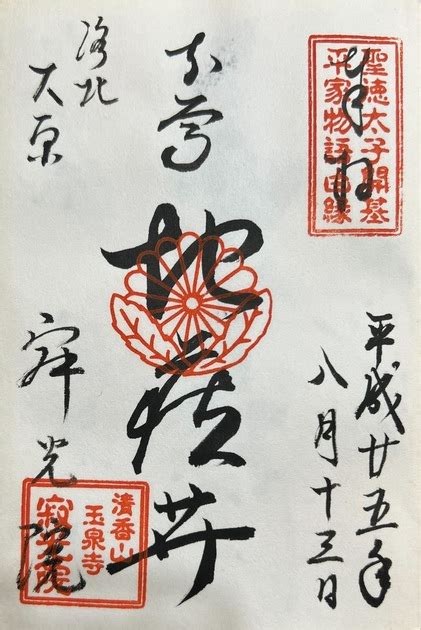 奉拝
聖徳太子開基
平家物語因縁
平成廿五年
八月十三日
地蔵𦬇
洛北
大原
寂光院
清香山
玉泉寺
寂光院